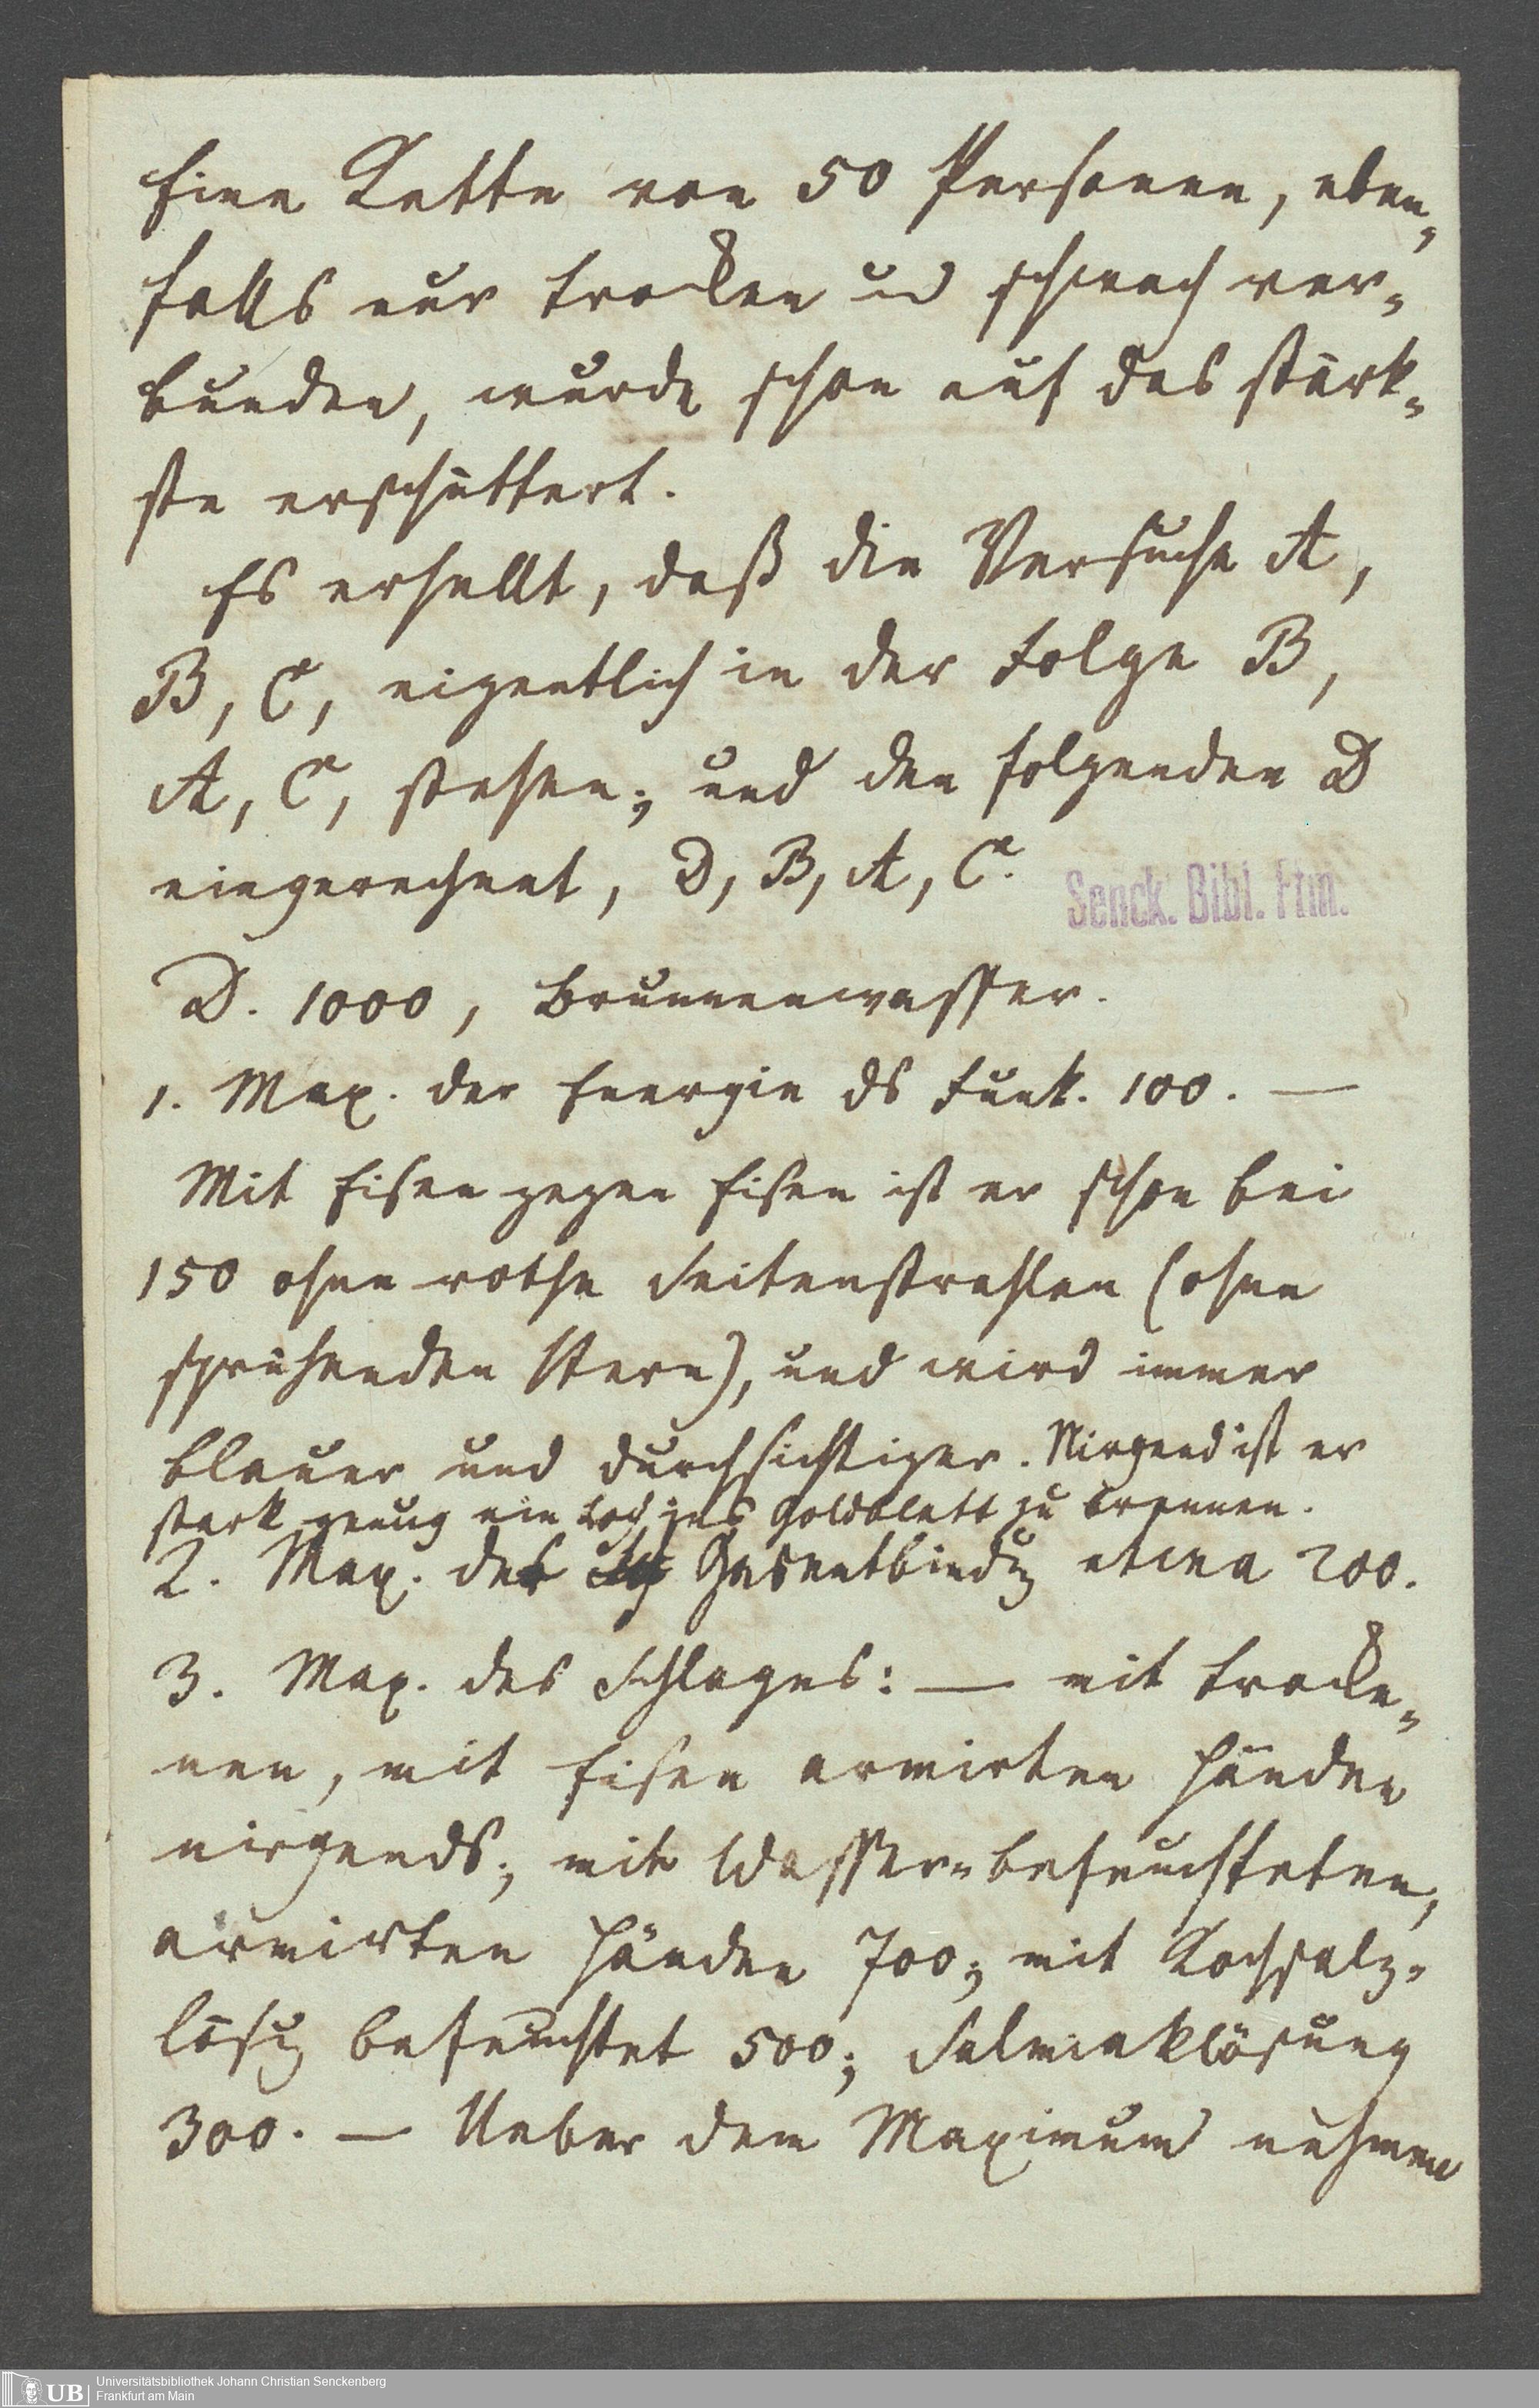 Eine Kette von 50 Personen, eben-
falls nur trocken und schwach ver-
bunden, wurde schon auf das stärk-
ste erschüttert.
Es erhellt, daß die Versuche A,
B, C, eigentlich in der Folge B,
A, C, stehen; und den folgenden D
eingerechnet, D, B, A, C.
Senck. Bibl. Ffm.
D. 1000, Brunnenwasser.
1. Max. der Energie ds Funk. 100. —
Mit Eisen gegen Eisen ist er schon bei
150 ohne rothe Seitenstrahlen (ohne
sprühenden Stern), und wird immer
blauer und durchsichtiger. Nirgend ist er
stark genug ein Loch ins Goldblatt zu brennen.
2. Max. der Gasentbindung etwa 200.
3. Max. des Schlages: — mit trocke-
nen, mit Eisen armirten Händen
nirgends; mit Wasser-befeuchteten,
armirten Händen 700; mit Kochsalz-
lösung befeuchtet 500; Salmiaklösung
300. — Ueber dem Maximum nehmen
UB
Universitätsbibliothek Johann Christian Senckenberg
Frankfurt am Main